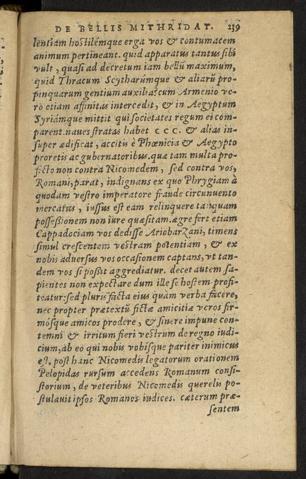 DE BELLIS MITHRIDAT. 239
lentiam hostilémque erga vos & contumacem
animum pertineant. quid apparatus tantus sibi
vult, quasi ad decretum iam belli maximum,
quid Thracum Scytharúmque & aliarū pro-
pinquarum gentium auxilia: cum Armenio ve-
rò etiam affinitas intercedit, & in Aegyptum
Syriámque mittit qui societates regum ei com-
parent. naues stratas habet CCC. & alias in-
super ædificat, accitis è Phœnicia & Aegypto
proretis ac gubernatoribus. quæ tam multa pro-
fectò non contra Nicomedem, sed contra vos,
Romani, parat, indignans ex quo Phrygiam à
quodam vestro imperatore fraude circunuento
mercatus, iussus est eam relinquere tanquam
possessionem non iure quæsitam. ægre fert etiam
Cappadociam vos dedisse Ariobarzani, timens
simul crescentem vestram potentiam, & ex
nobis aduersus vos occasionem captans, vt tan-
dem vos si possit aggrediatur. decet autem sa-
pientes non expectare dum ille se hostem profi-
teatur: sed pluris facta eius quàm verba facere,
nec propter prætextū fictæ amicitiæ veros fir-
mósque amicos prodere, & sinere impune con-
temni & irritum fieri vestrum de regno iudi-
cium, ab eo qui nobis vobisque pariter inimicus
est, post hanc Nicomedis legatorum orationem
Pelopidas rursum accedens Romanum consi-
storium, de veteribus Nicomedis querelis po-
stulauit ipsos Romanos iudices. cæterum præ-
sentem